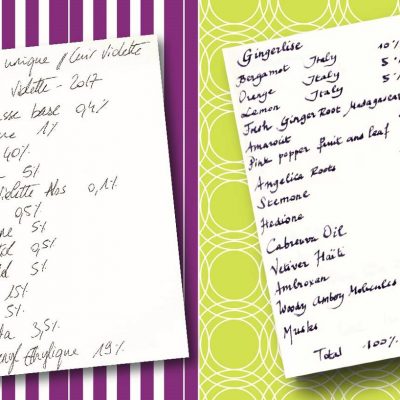 unique fleur violette
Violette - 2017
sse base 0,4%
1%
40%
5%
Violette Abs 0,1%
0,5%
ne 5%
0,5%
5%
15%
5%
3,5%
19%
Gingerlise 10%
Bergamot Italy 5%
Orange Italy 5%
Lemon Italy
Fresh Ginger Root Madagascar
Amarocit
Pink popper fruit and leaf
Angelica Roots
Stemone
Hedione
Cabreuva Oil
Vetiver Haïti
Ambroxan
Woody Amboy Molecules
Muskes
Total 100%